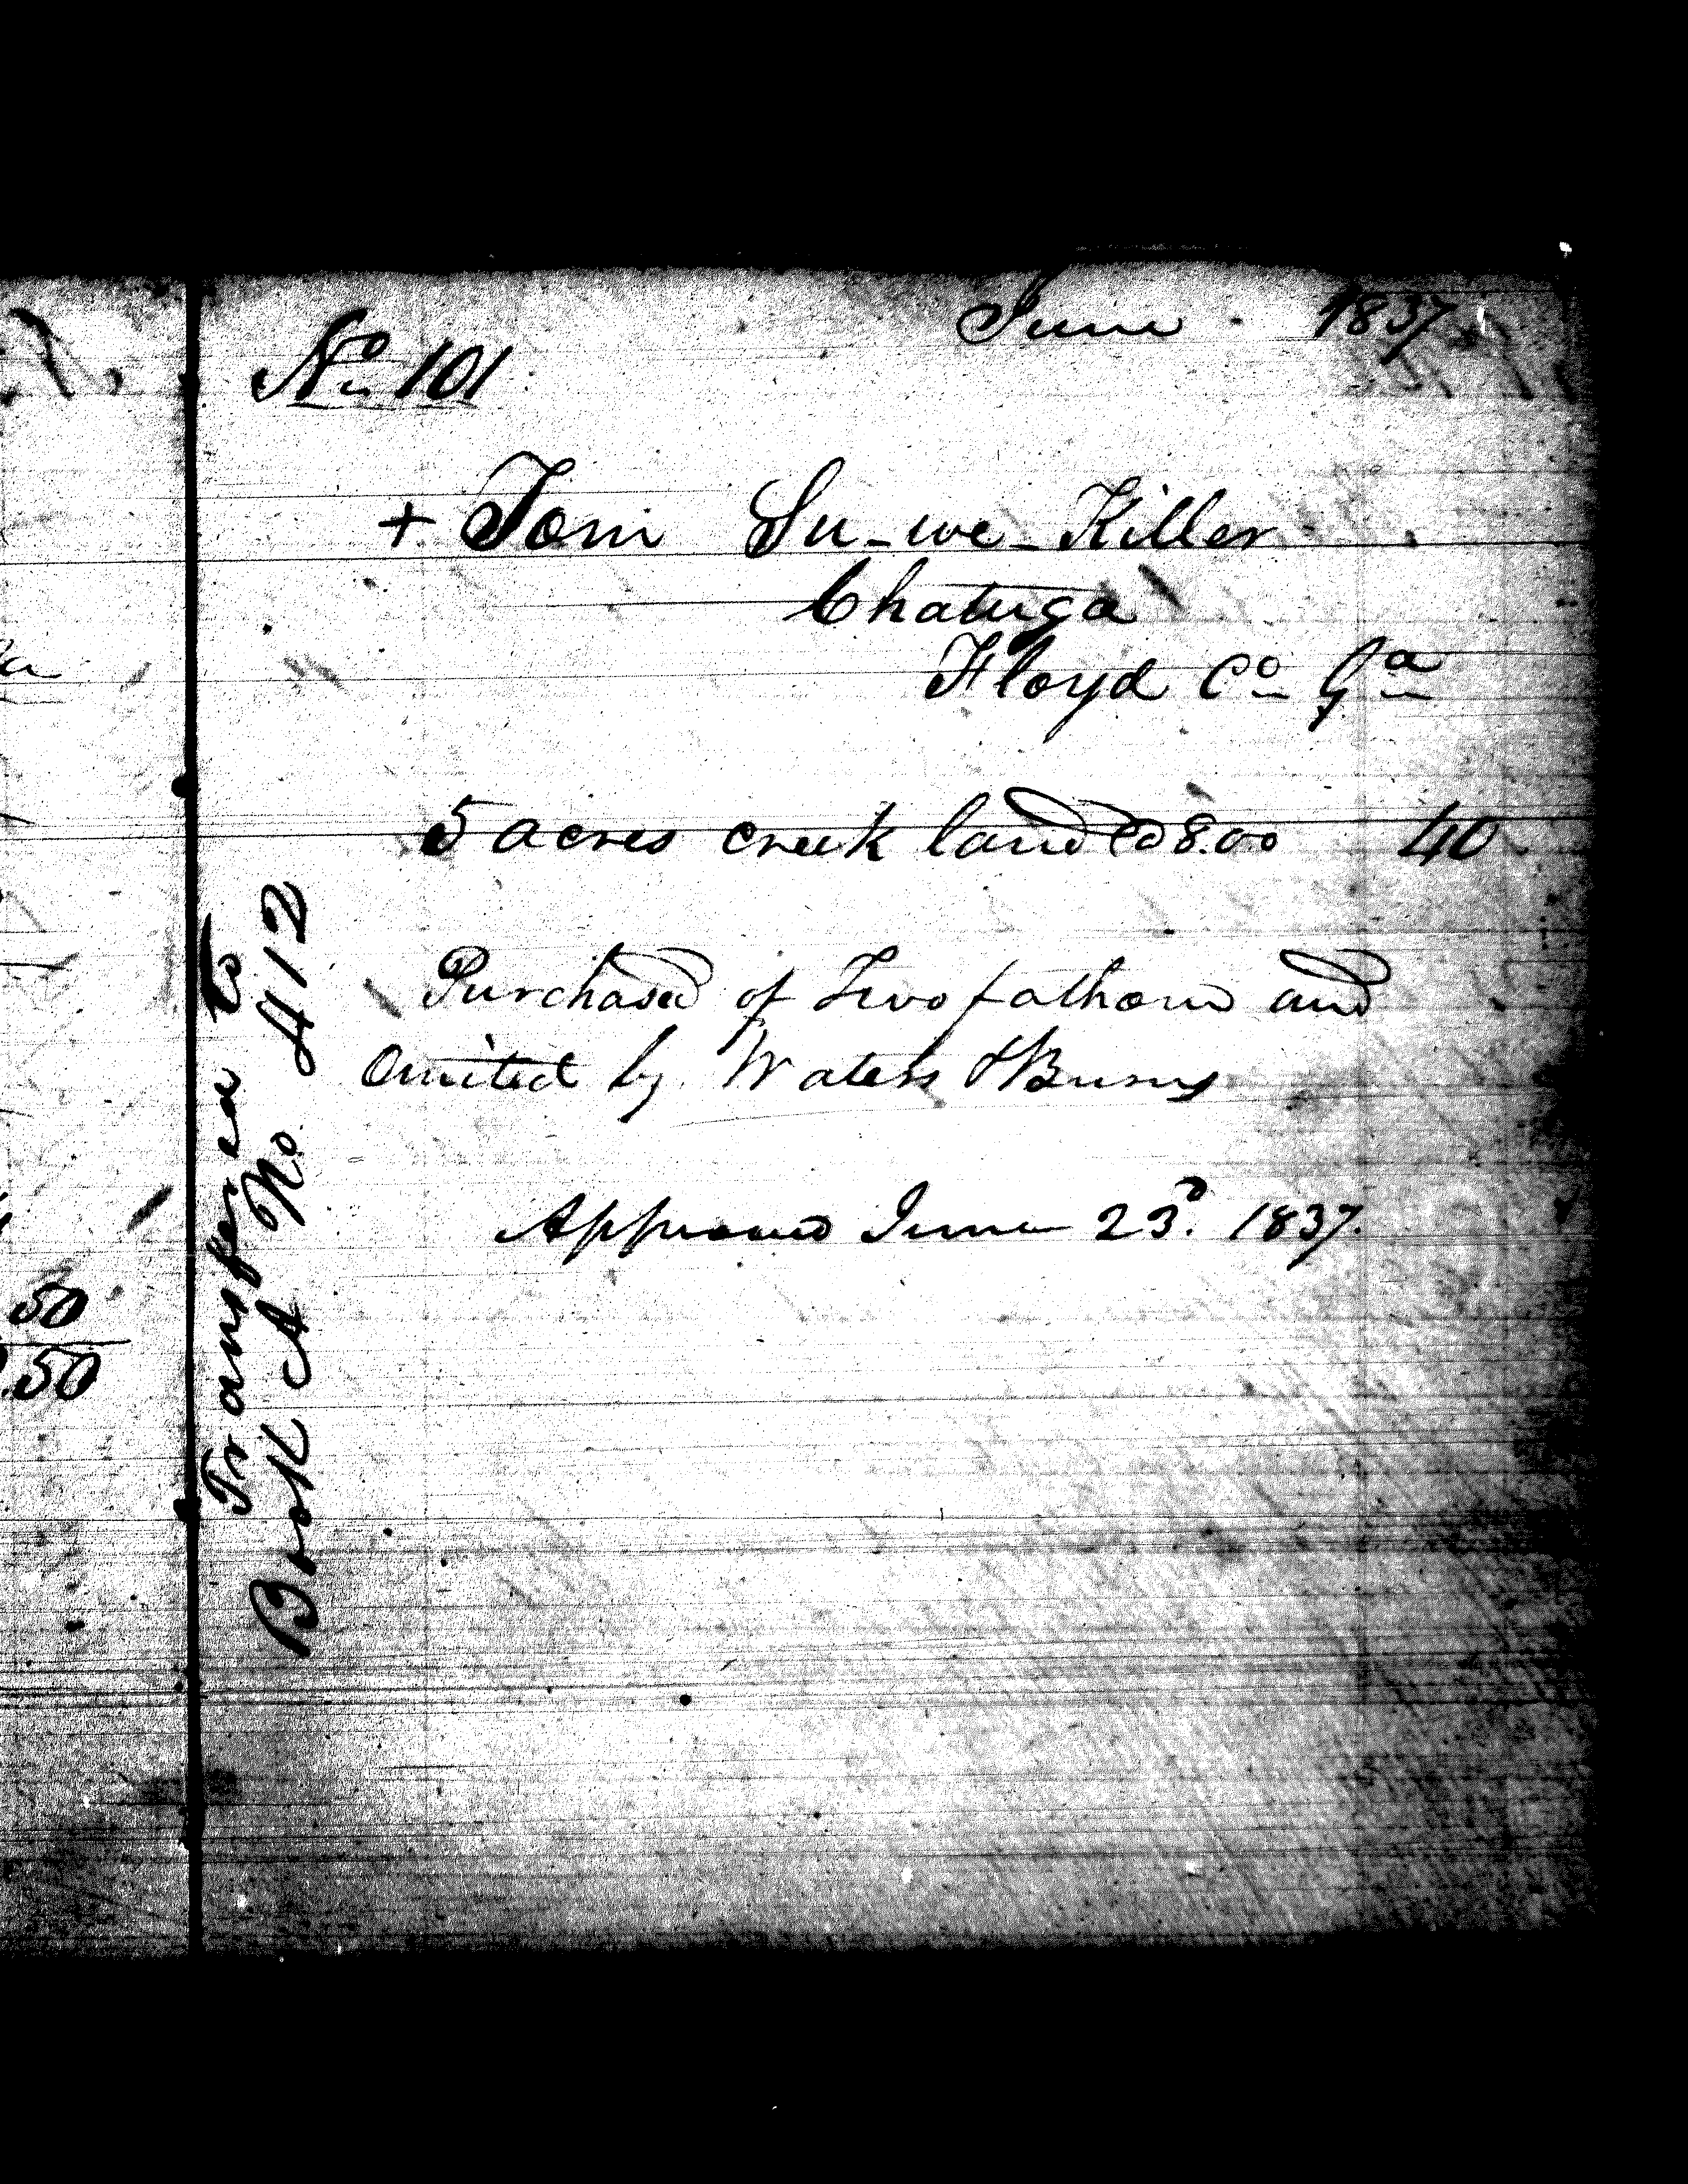 June 1837
No 101
+ Tom Su-we-Killer
Chatuga
Floyd Co Ga
5 acres creek land @ 8.00 40
Purchased of Two fathom and
Omited by Waters & Burns
Approved June 23d. 1837.
Transfered to
Book A No. 412
50
.50